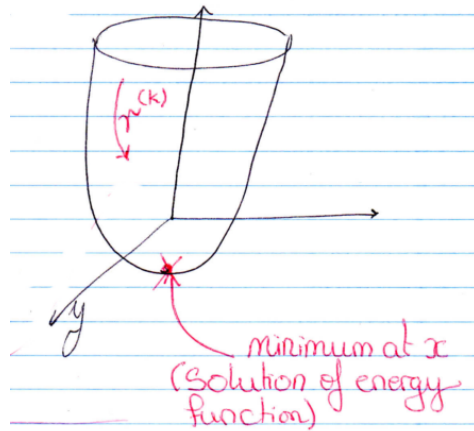 x^(k)
y
minimum at x
(Solution of energy
function)